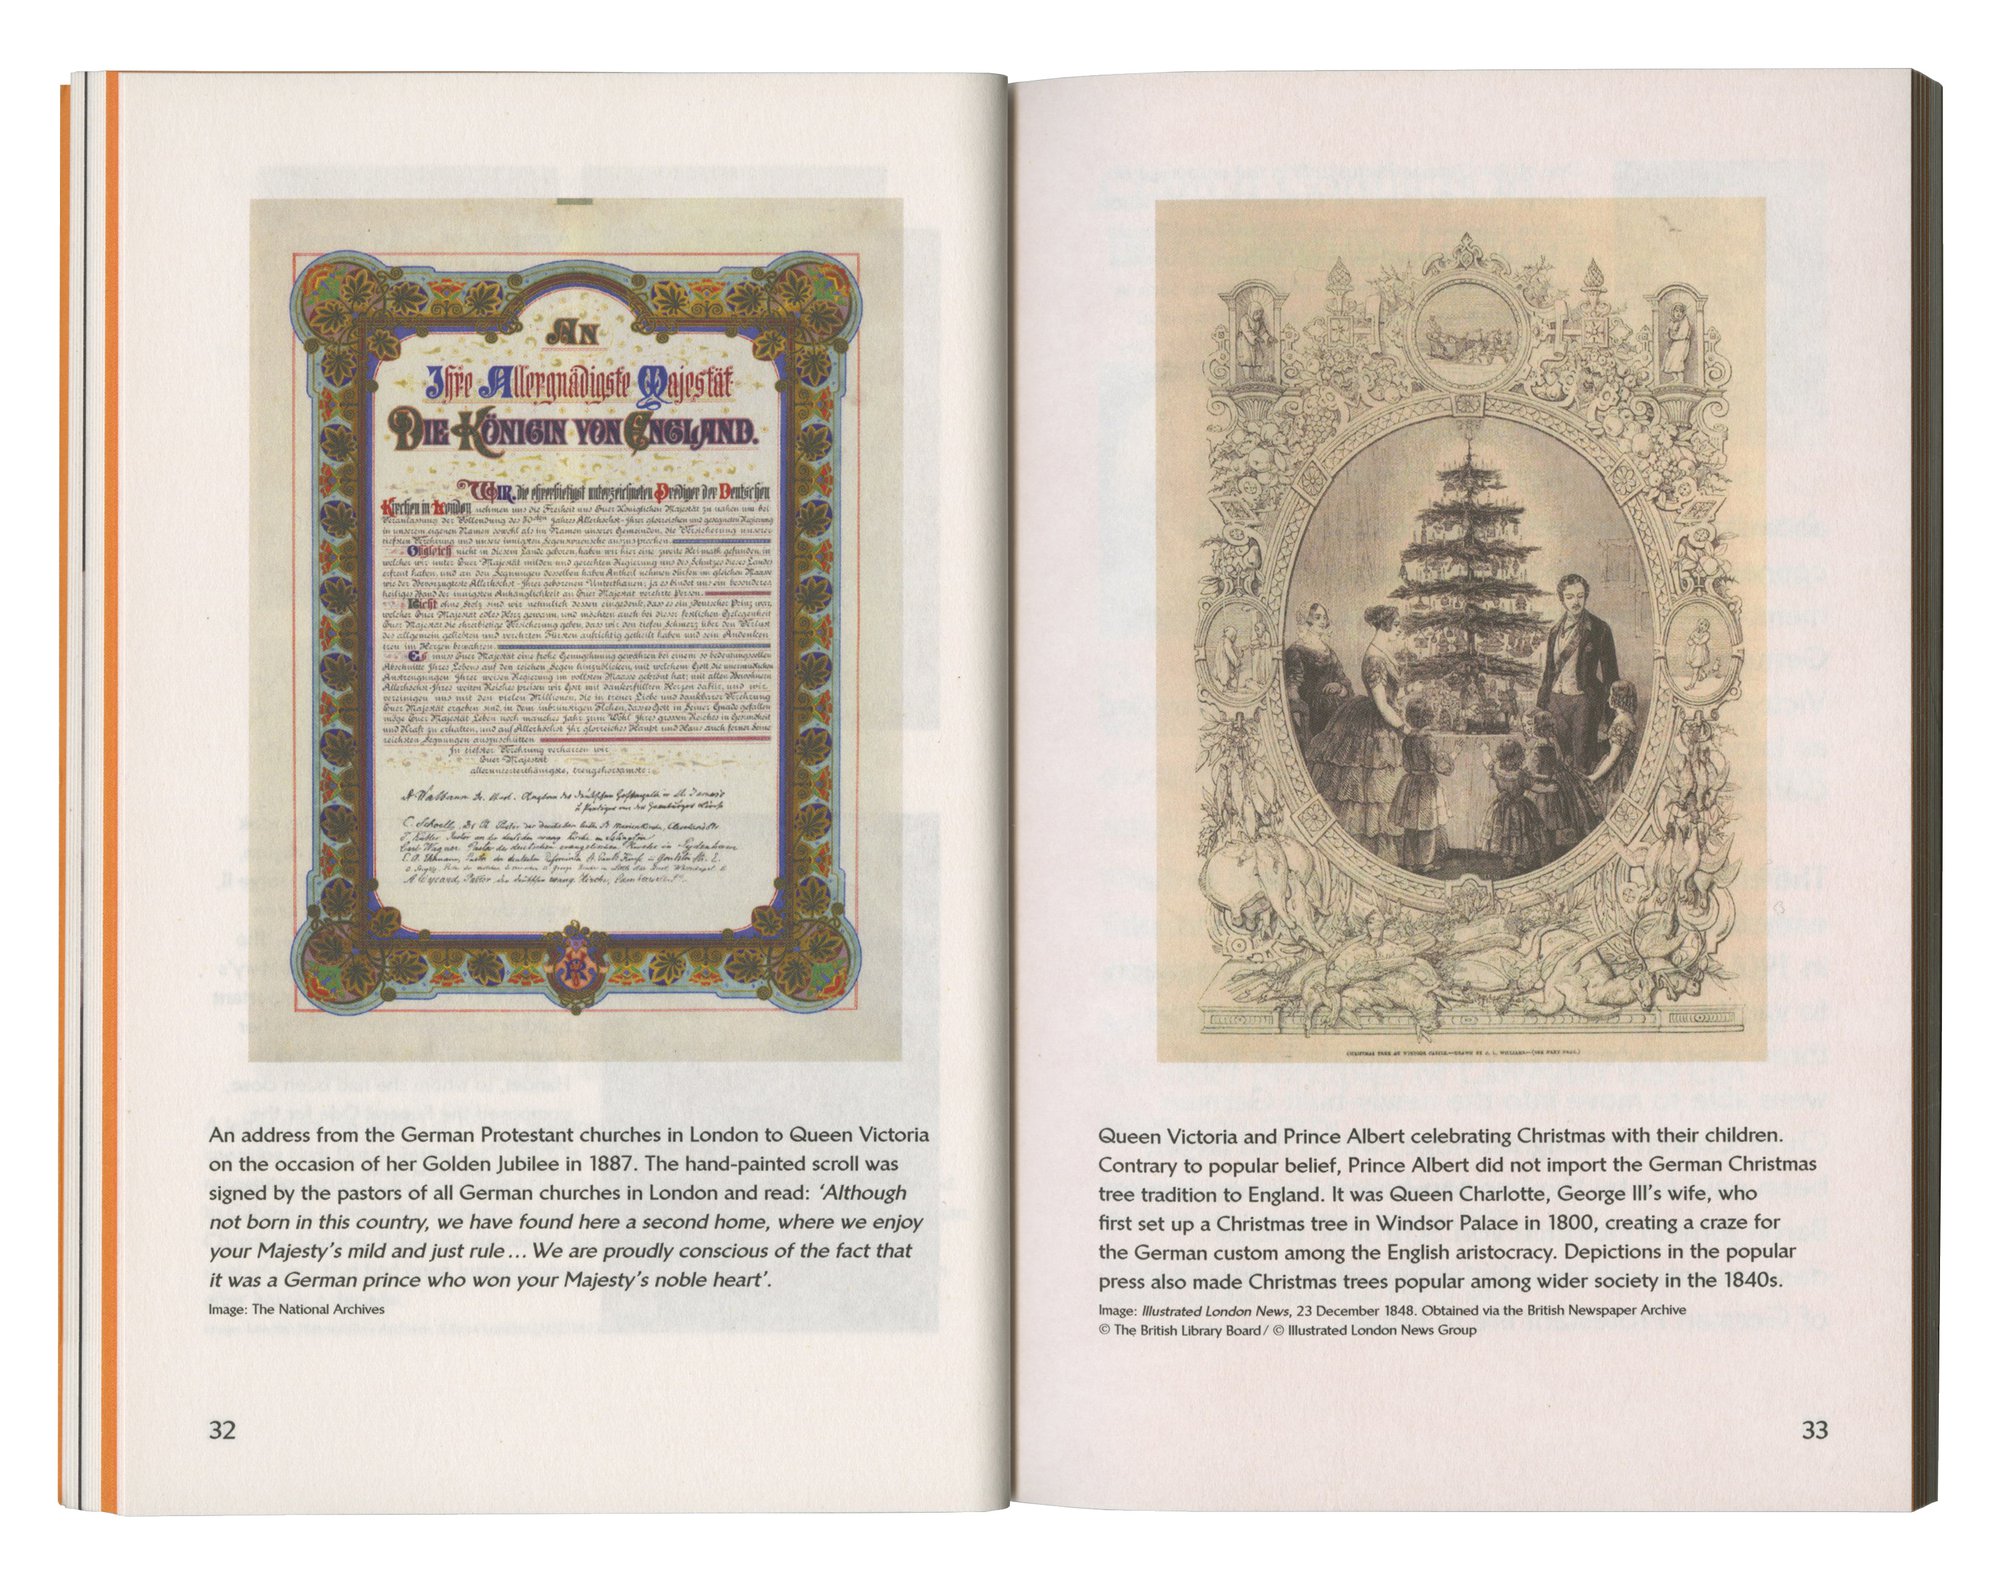 AN
Ihre Allergnädigste Majestät
DIE KÖNIGIN VON ENGLAND.
WIR, die ehrerbietigst unterzeichneten Prediger der Deutschen
Kirchen in London nehmen uns die Freiheit uns Euer Königlichen Majestät zu nahen um bei
Veranlassung der Vollendung des 50sten Jahres Allerhöchst-Ihrer glorreichen und gesegneten Regierung
in unserem eigenen Namen sowohl als im Namen unserer Gemeinden, die Versicherung unserer
tiefsten Verehrung und unsere innigsten Segenswünsche auszusprechen.
Obgleich nicht in diesem Lande geboren, haben wir hier eine zweite Heimath gefunden, in
welcher wir unter Euer Majestät milden und gerechten Regierung uns des Schutzes dieses Landes
erfreut haben, und an den Segnungen desselben haben Antheil nehmen dürfen im gleichen Maase
wie der bevorzugteste Allerhöchst-Ihrer geborenen Unterthanen; ja es bindet uns ein besonderes
heiliges Band der innigsten Anhänglichkeit an Euer Majestät verehrte Person.
Nicht ohne Stolz sind wir nehmlich dessen eingedenk, dass es ein Deutscher Prinz war,
welcher Euer Majestät edles Herz gewann, und möchten auch bei dieser festlichen Gelegenheit
Euer Majestät die ehrerbietige Versicherung geben, dass wir den tiefen Schmerz über den Verlust
des allgemein geliebten und verehrten Fürsten aufrichtig getheilt haben und sein Andenken
treu im Herzen bewahren.
Es muss Euer Majestät eine frohe Genugthuung gewähren bei einem so bedeutungsvollen
Abschnitte Ihres Lebens auf den reichen Segen hinzublicken, mit welchem Gott die unermüdlichen
Anstrengungen Ihrer weisen Regierung im vollsten Maasse gekrönt hat; mit allen Bewohnern
Allerhöchst-Ihres weiten Reiches preisen wir Gott mit dankerfüllten Herzen dafür, und wir
vereinigen uns mit den vielen Millionen, die in treuer Liebe und dankbarer Verehrung
Euer Majestät ergeben sind, in dem inbrünstigen Flehen, dass es Gott in Seiner Gnade gefallen
möge Euer Majestät Leben noch manches Jahr zum Wohl Ihres grossen Reiches in Gesundheit
und Kraft zu erhalten, und auf Allerhöchst Ihr glorreiches Haupt und Haus auch ferner Seine
reichsten Segnungen auszuschütten
In tiefster Verehrung verharren wir
Euer Majestät
allerunterthänigste, treugehorsamste:
C. Schoell, Dr.
Carl Wagner Pastor der deutschen evangelischen Kirche in Sydenham
CHRISTMAS TREE AT WINDSOR CASTLE.—DRAWN BY J. L. WILLIAMS.—(SEE NEXT PAGE.)
An address from the German Protestant churches in London to Queen Victoria
on the occasion of her Golden Jubilee in 1887. The hand-painted scroll was
signed by the pastors of all German churches in London and read: ‘Although
not born in this country, we have found here a second home, where we enjoy
your Majesty’s mild and just rule… We are proudly conscious of the fact that
it was a German prince who won your Majesty’s noble heart’.
Image: The National Archives
32
Queen Victoria and Prince Albert celebrating Christmas with their children.
Contrary to popular belief, Prince Albert did not import the German Christmas
tree tradition to England. It was Queen Charlotte, George III’s wife, who
first set up a Christmas tree in Windsor Palace in 1800, creating a craze for
the German custom among the English aristocracy. Depictions in the popular
press also made Christmas trees popular among wider society in the 1840s.
Image: Illustrated London News, 23 December 1848. Obtained via the British Newspaper Archive
© The British Library Board / © Illustrated London News Group
33